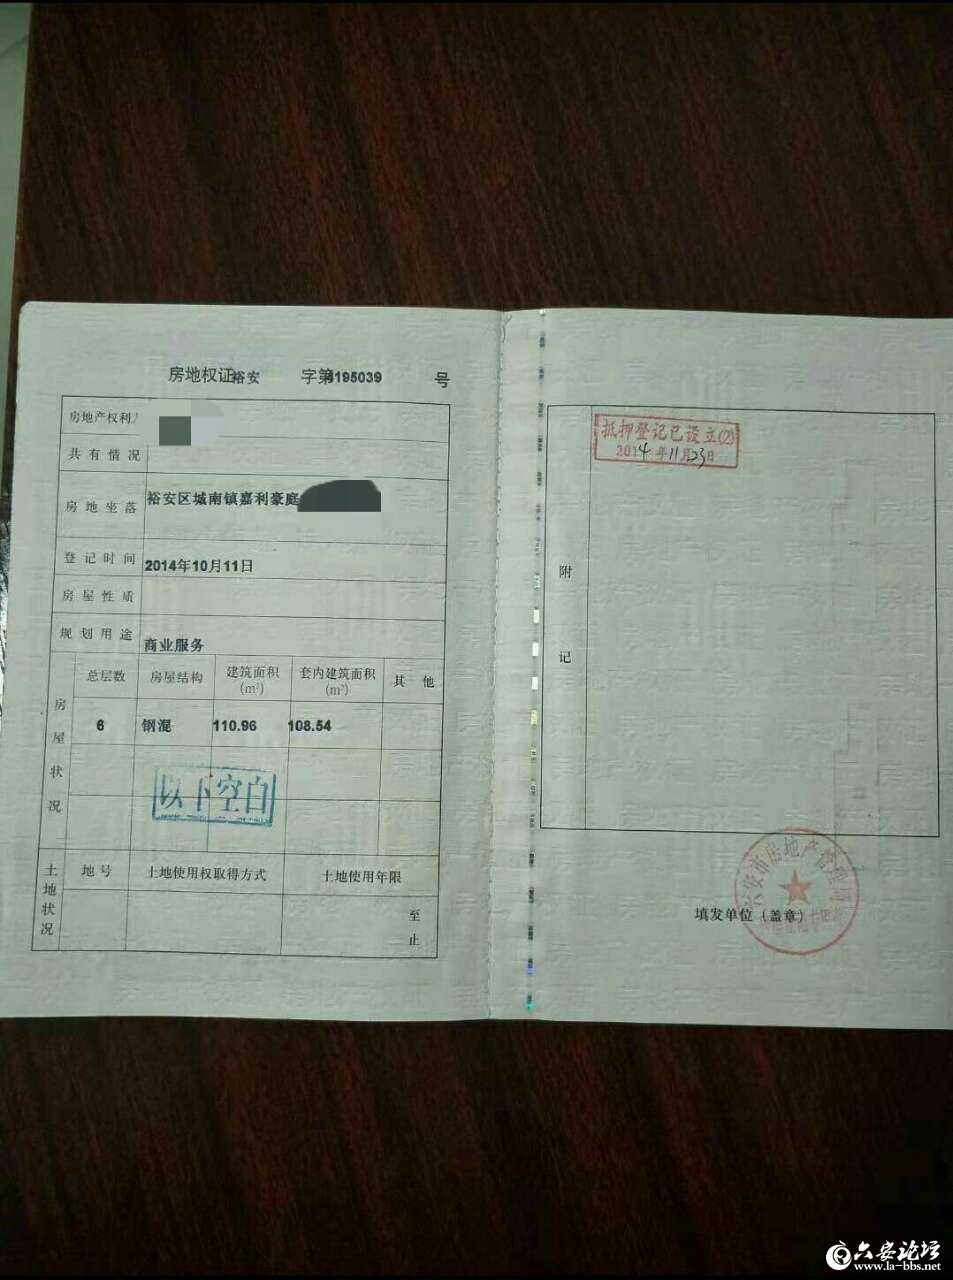 房地权证裕安 字第4195039 号
房地产权利人
共有情况
房地坐落 裕安区城南镇嘉利豪庭
登记时间 2014年10月11日
房屋性质
规划用途 商业服务
房屋状况
总层数 房屋结构 建筑面积(m²) 套内建筑面积(m²) 其他
6 钢混 110.96 108.54
以下空白
土地状况
地号 土地使用权取得方式 土地使用年限
至
止
抵押登记已设立(2)
2014年11月23日
附
记
填发单位(盖章)
六安市房地产管理局
六安论坛
www.la-bbs.net